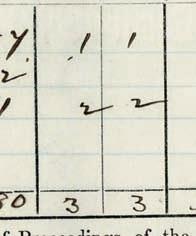 7 1 1
2
1 2 2
30 3 3
of Proceedings of the